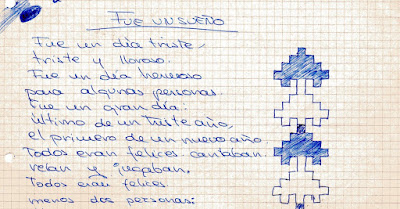 FUE UN SUEÑO
Fue un día triste,
triste y lloroso.
Fue un día hermoso
para algunas personas.
Fue un gran día:
último de un triste año,
el primero de un nuevo año.
Todos eran felices. cantaban
reían y jugaban.
Todos eran felices.
menos dos personas: